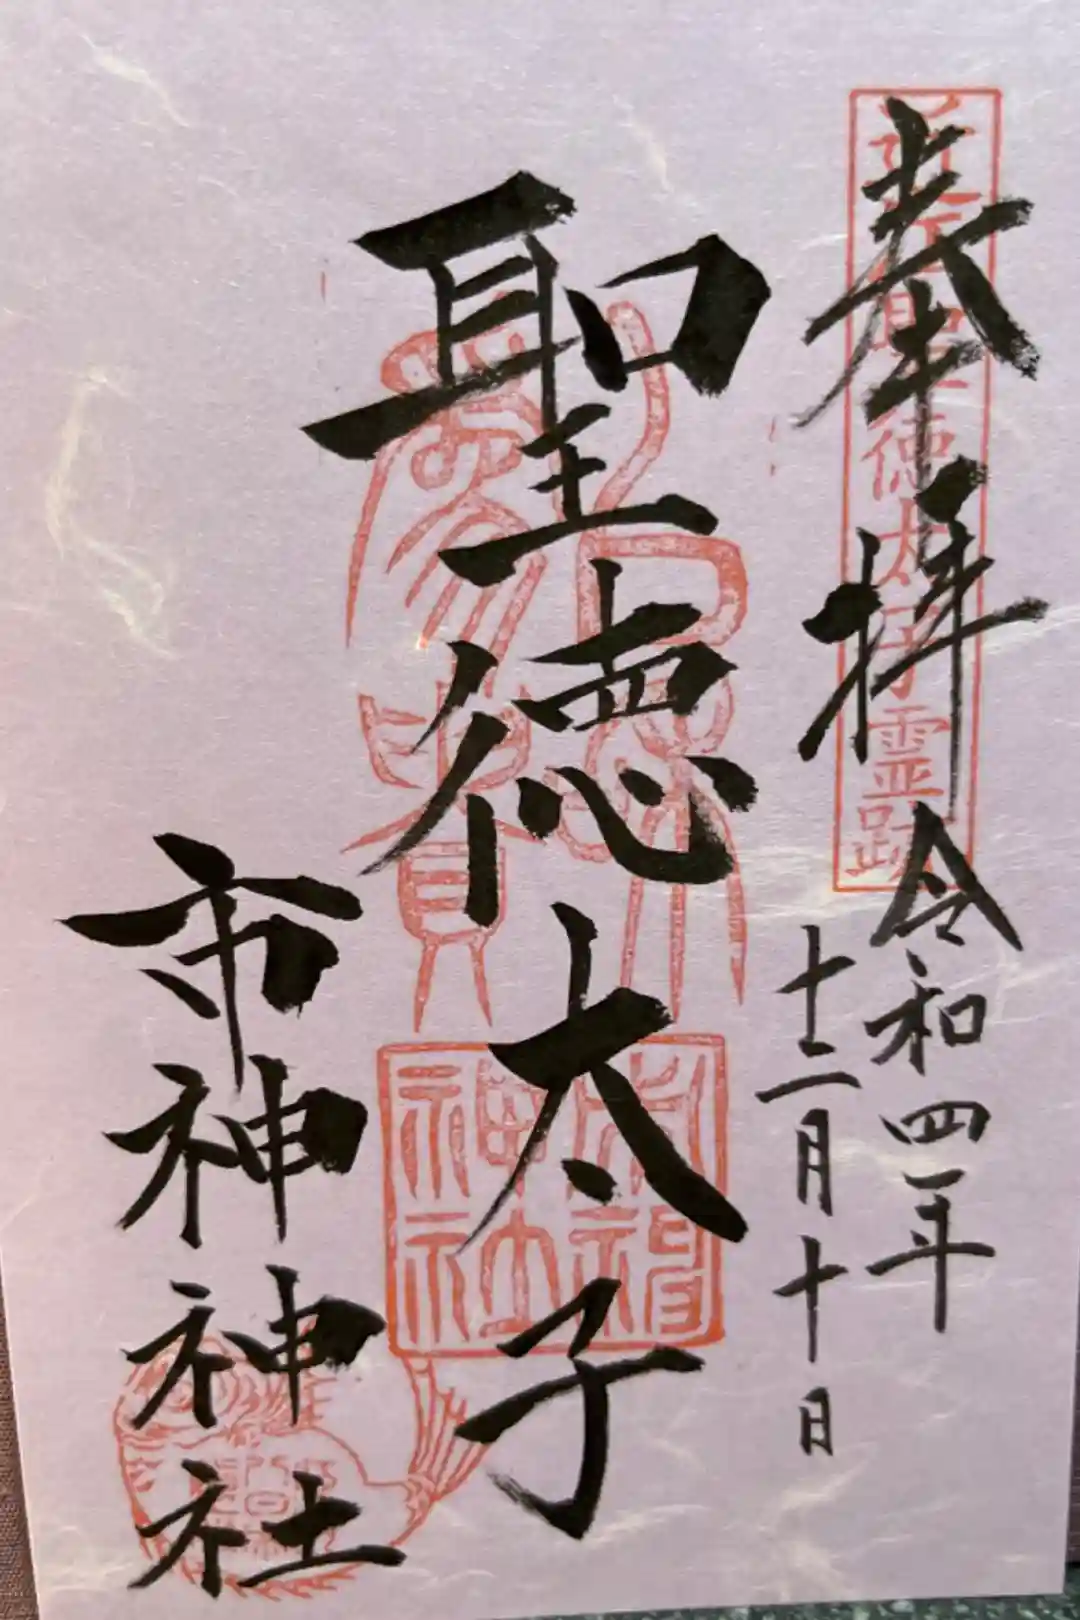 奉拝
近江聖徳太子霊跡
令和四年
十二月十日
聖徳太子
市神神社